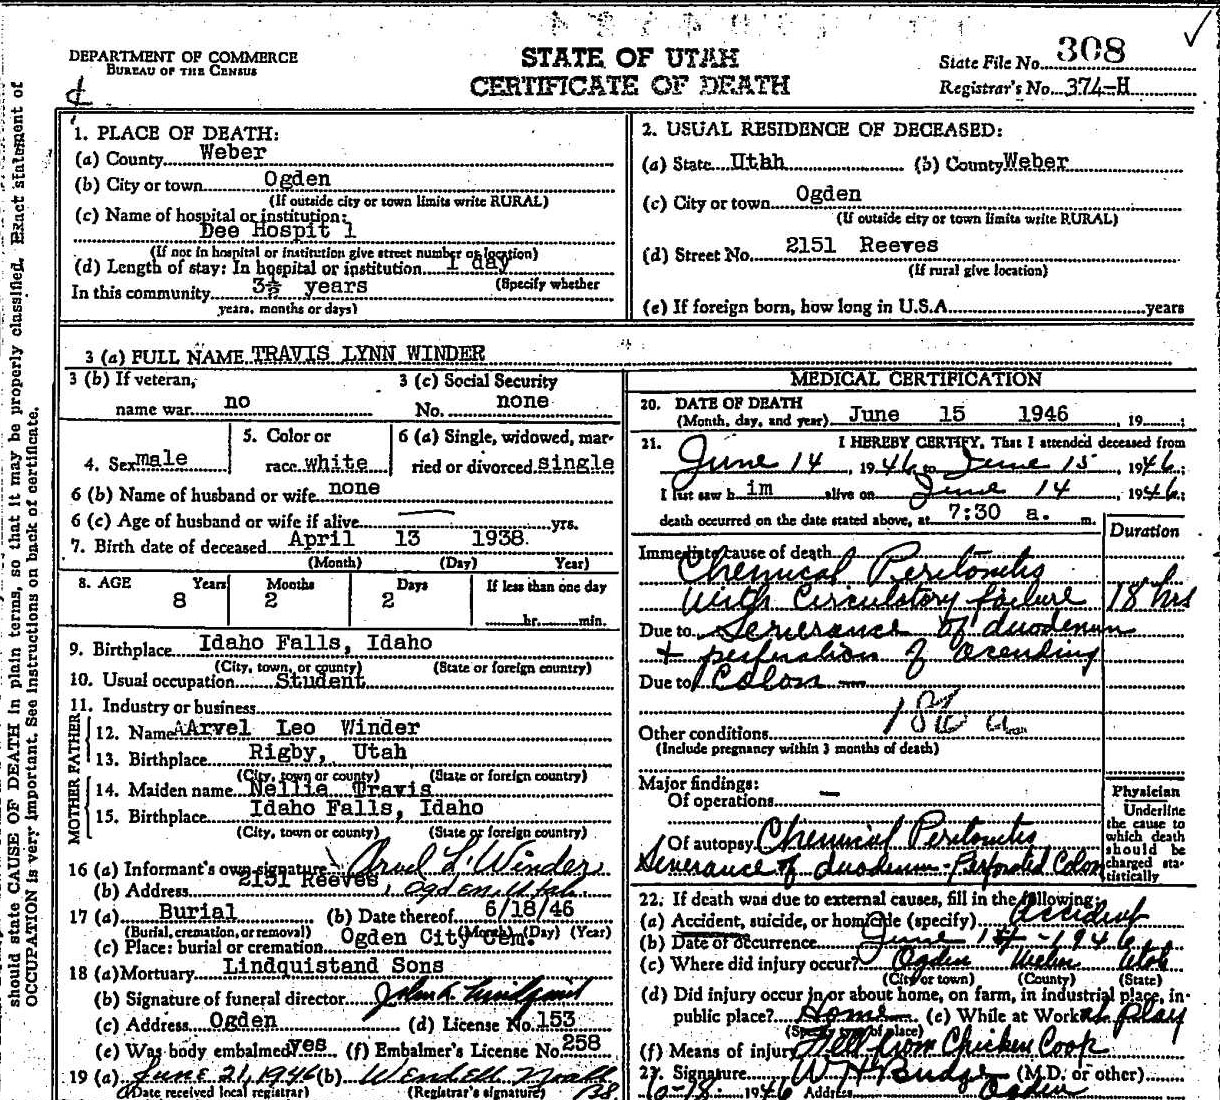 should state CAUSE OF DEATH in plain terms, so that it may be properly classified. Exact statement of
OCCUPATION is very important. See instructions on back of certificate.
DEPARTMENT OF COMMERCE
BUREAU OF THE CENSUS
STATE OF UTAH
CERTIFICATE OF DEATH
State File No. 308
Registrar's No. 374-H
1. PLACE OF DEATH:
(a) County Weber
(b) City or town Ogden
(If outside city or town limits write RURAL)
(c) Name of hospital or institution:
Dee Hospit l
(If not in hospital or institution give street number or location)
(d) Length of stay: In hospital or institution 1 day
(Specify whether
In this community 3½ years
years, months or days)
2. USUAL RESIDENCE OF DECEASED:
(a) State Utah (b) County Weber
(c) City or town Ogden
(If outside city or town limits write RURAL)
(d) Street No. 2151 Reeves
(If rural give location)
(e) If foreign born, how long in U.S.A. years
3 (a) FULL NAME TRAVIS LYNN WINDER
3 (b) If veteran,
name war no
3 (c) Social Security
No. none
4. Sex male
5. Color or
race white
6 (a) Single, widowed, mar-
ried or divorced single
6 (b) Name of husband or wife none
6 (c) Age of husband or wife if alive yrs.
7. Birth date of deceased April 13 1938
(Month) (Day) Year)
8. AGE Years Months Days If less than one day
8 2 2 hr. min.
9. Birthplace Idaho Falls, Idaho
(City, town, or county) (State or foreign country)
10. Usual occupation Student
11. Industry or business
FATHER
12. Name Arvel Leo Winder
13. Birthplace Rigby, Utah
(City, town or county) (State or foreign country)
MOTHER
14. Maiden name Nellie Travis
15. Birthplace Idaho Falls, Idaho
(City, town or county) (State or foreign country)
16 (a) Informant's own signature Arvel L. Winder
(b) Address 2151 Reeves, Ogden, Utah
17 (a) Burial (b) Date thereof 6/18/46
(Burial, cremation, or removal) (Month) (Day) (Year)
(c) Place: burial or cremation Ogden City Cem.
18 (a) Mortuary Lindquistand Sons
(b) Signature of funeral director
(c) Address Ogden (d) License No. 153
(e) Was body embalmed yes (f) Embalmer's License No. 258
19 (a) June 21, 1946 (b) Wendell Noall
(Date received local registrar) (Registrar's signature)
MEDICAL CERTIFICATION
20. DATE OF DEATH
(Month, day, and year) June 15 1946, 19
21. I HEREBY CERTIFY, That I attended deceased from
June 14, 1946 to June 15 1946;
I last saw h im alive on June 14, 1946;
death occurred on the date stated above, at 7:30 a. m.
Duration
Immediate cause of death
Chemical Peritonitis
with Circulatory failure 18 hrs
Due to Severance of duodenum
+ perforation of ascending
Due to Colon
186 a
Other conditions
(Include pregnancy within 3 months of death)
Major findings:
Of operations —
Of autopsy Chemical Peritonitis
Severance of duodenum - Perforated Colon
Physician
Underline
the cause to
which death
should be
charged sta-
tistically
22. If death was due to external causes, fill in the following:
(a) Accident, suicide, or homicide (specify) Accident
(b) Date of occurrence June 14 - 1946
(c) Where did injury occur? Ogden Weber Utah
(City or town) (County) (State)
(d) Did injury occur in or about home, on farm, in industrial place, in
public place? Home (e) While at Work at Play
(Specify type of place)
(f) Means of injury Fell from Chicken Coop
23. Signature W H Budge (M.D. or other)
6-18 1946 Address Ogden